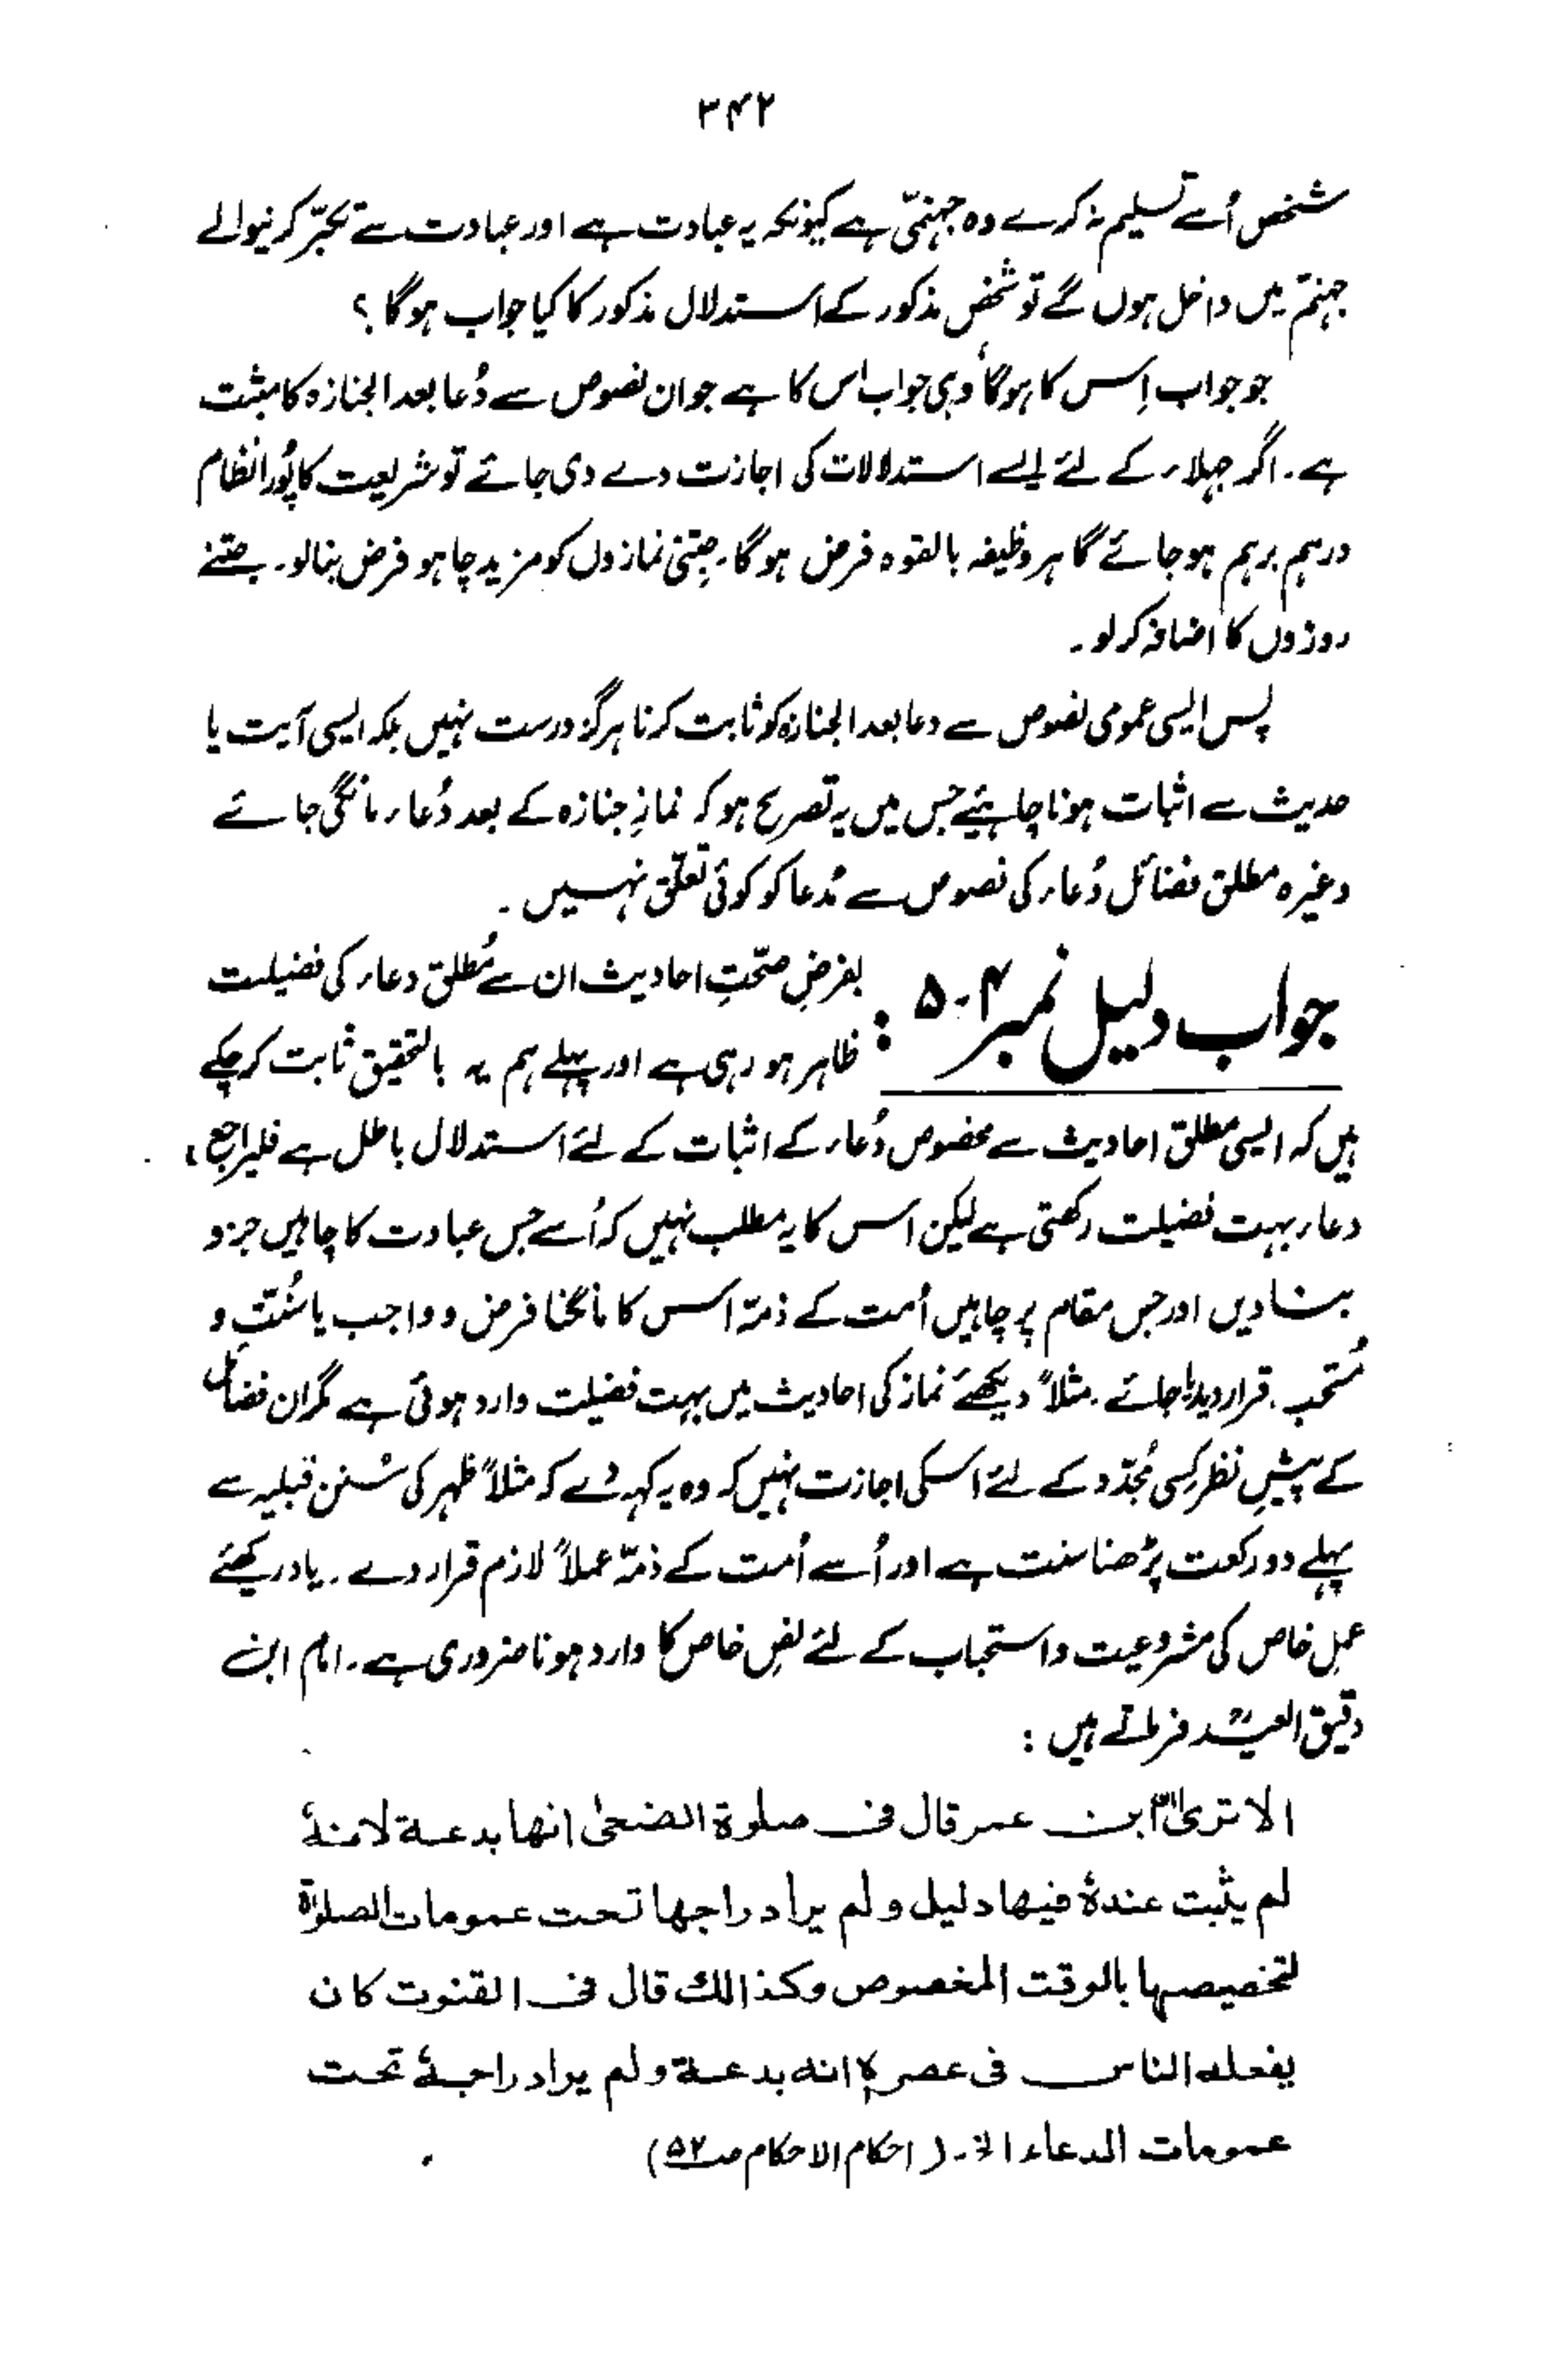 ۳۴۲
شخص اُسے تسلیم نہ کرے وہ جہنمیّ ہے کیونکہ یہ عبادت ہے اور عبادت سے تکبّر کرنیوالے
جہنم میں داخل ہوں گے تو شخص مذکور کے استدلال مذکور کا کیا جواب ہوگا ؟
جو جواب اِس کا ہوگا وہی جواب اُس کا ہے جو ان نصوص سے دُعا بعد الجنازہ کا مثبت
ہے ۔ اگر جہلاء کے لئے ایسے استدلالات کی اجازت دے دی جائے تو شریعت کا پُورا نظام
درہم برہم ہو جائے گا ہر وظیفہ بالقوہ فرض ہوگا ۔ جتنی نمازوں کو مزید چاہو فرض بنا لو ۔ جتنے
روزوں کا اضافہ کر لو ۔
پس ایسی عمومی نصوص سے دعا بعد الجنازہ کو ثابت کرنا ہرگز درست نہیں بلکہ ایسی آیت یا
حدیث سے اثبات ہونا چاہیئے جس میں یہ تصریح ہو کہ نمازِ جنازہ کے بعد دُعاء مانگی جائے
وغیرہ مطلق فضائل دُعاء کی نصوص سے مُدعا کو کوئی تعلّق نہیں ۔
جواب دلیل نمبر ۴ - ۵ : بفرضِ صحّتِ احادیث ان سے مُطلق دعاء کی فضیلت
ظاہر ہو رہی ہے اور پہلے ہم یہ بالتحقیق ثابت کر چکے
ہیں کہ ایسی مطلق احادیث سے مخصوص دُعاء کے اثبات کے لئے استدلال باطل ہے فلیراجع ،
دعاء بہت فضیلت رکھتی ہے لیکن اس کا یہ مطلب نہیں کہ اُسے جس عبادت کا چاہیں جزو
بنا دیں اور جس مقام پر چاہیں اُمت کے ذمّہ اس کا مانگنا فرض و واجب یا سُنّت و
مُستحب قرار دیدیا جائے ۔ مثلاً دیکھئے نماز کی احادیث میں بہت فضیلت وارد ہوئی ہے مگر ان فضائل
کے پیشِ نظر کسی مُجدّد کے لئے اسکی اجازت نہیں کہ وہ یہ کہہ دے کہ مثلاً ظہر کی سُنن قبلیہ سے
پہلے دو رکعت پڑھنا سنت ہے اور اُسے اُمت کے ذمّہ عملاً لازم قرار دے ۔ یاد رکھئے
عمل خاص کی مشروعیت و استحباب کے لئے نصِ خاص کا وارد ہونا ضروری ہے ۔ امام ابن
دقیق العیدؒ فرماتے ہیں :
الا تریٰ ان ابن عمر قال فی صلوة الضحیٰ انها بدعة لانهٗ
لم یثبت عندهٗ فیها دلیل ولم یر ادراجها تحت عمومات الصلوٰة
لتخصیصها بالوقت المخصوص وکذالك قال فی القنوت کان
یفعله الناس فی عصرہٖ انه بدعة ولم یر ادراجهٗ تحت
عمومات الدعاء الخ ۔ ( احکام الاحکام صـ ۵۲ )